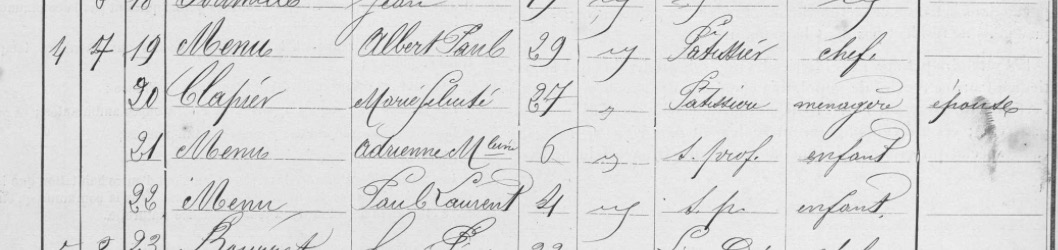 Jean
4 7 19 Menu Albert Paul 29 Pâtissier chef.
20 Clapier Marie félicité 27 Patissiere menagère épouse
21 Menu adrienne M leine 6 s. prof. enfant
22 Menu Paul Laurent 4 s. p. enfant.
23